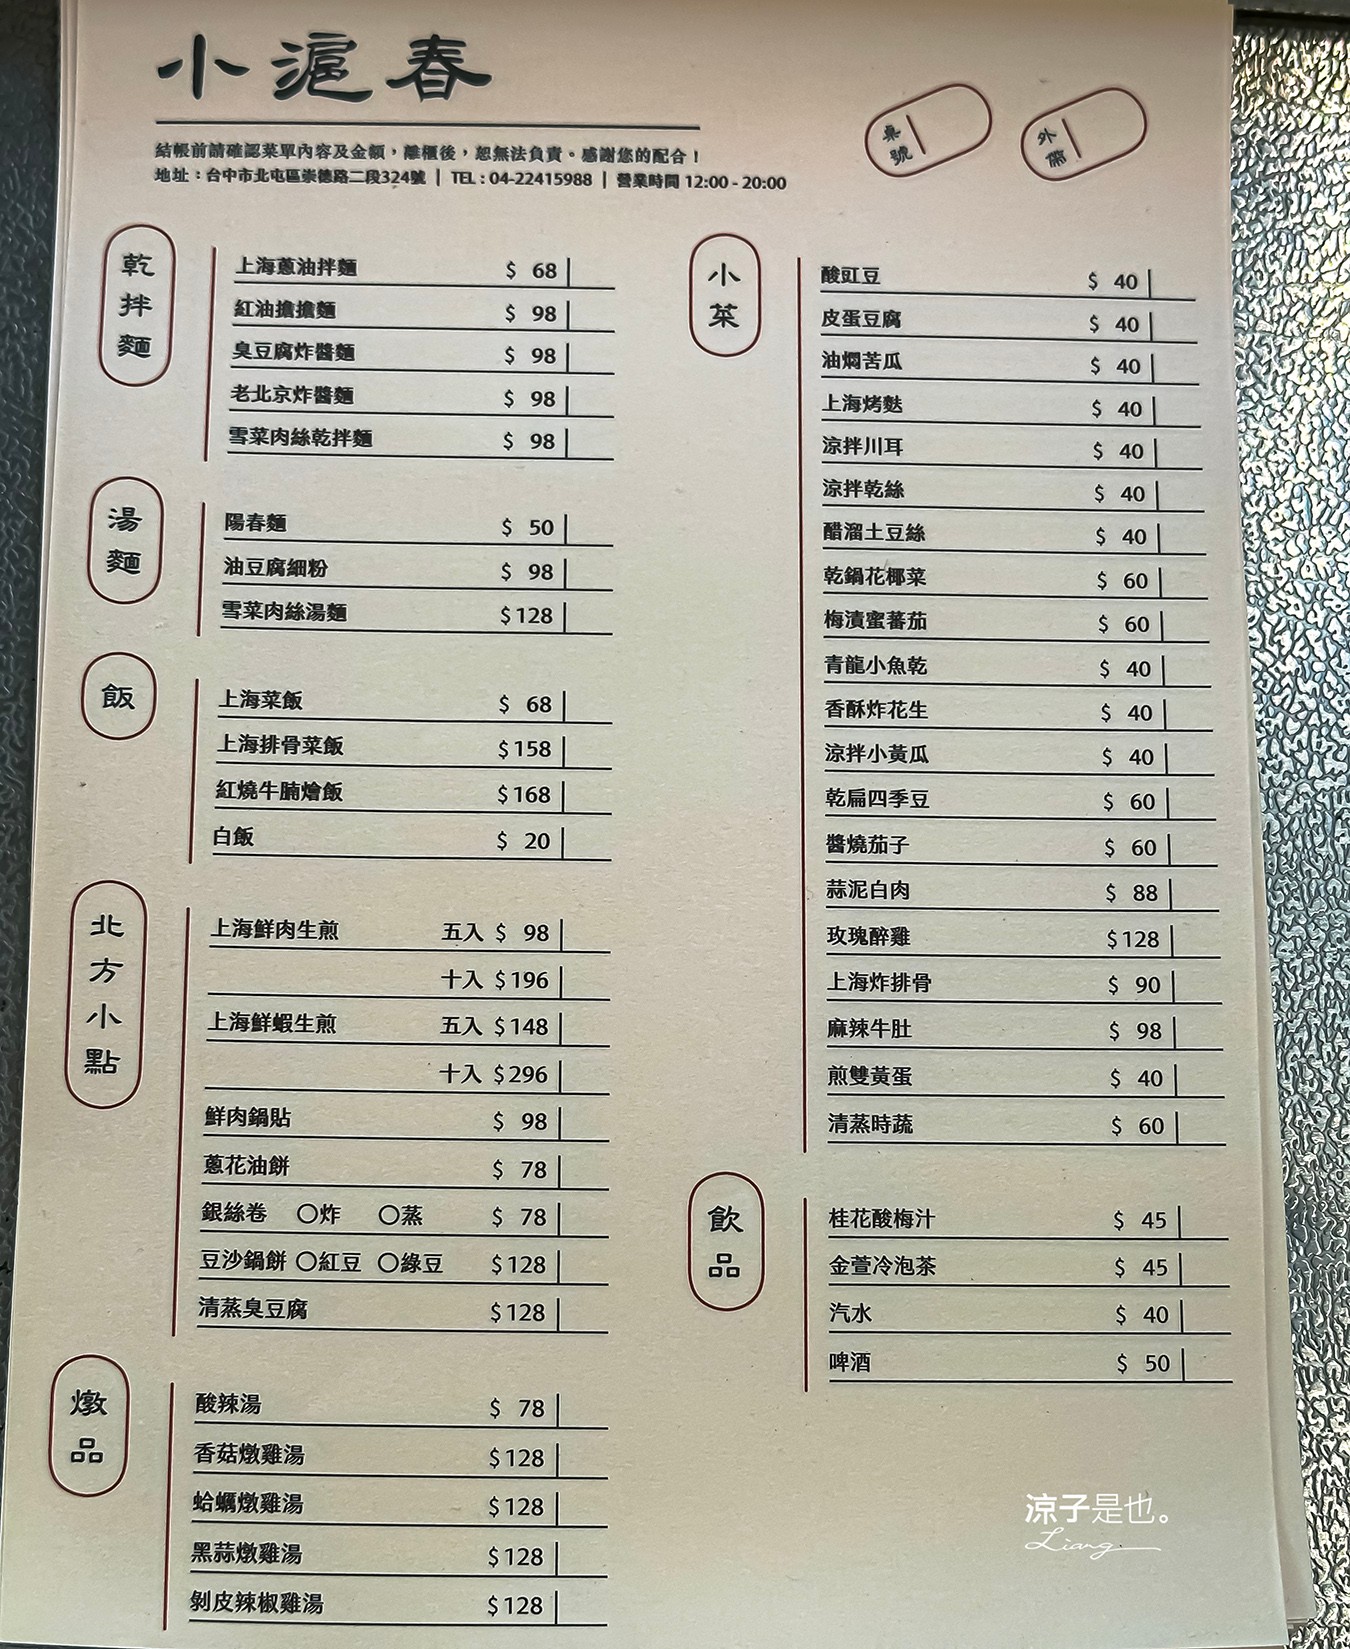 小滬春
結帳前請確認菜單內容及金額，離櫃後，恕無法負責。感謝您的配合！
地址：台中市北屯區崇德路二段324號 | TEL : 04-22415988 | 營業時間 12:00 - 20:00
桌號
外帶
乾拌麵
上海蔥油拌麵 $ 68
紅油擔擔麵 $ 98
臭豆腐炸醬麵 $ 98
老北京炸醬麵 $ 98
雪菜肉絲乾拌麵 $ 98
湯麵
陽春麵 $ 50
油豆腐細粉 $ 98
雪菜肉絲湯麵 $128
飯
上海菜飯 $ 68
上海排骨菜飯 $158
紅燒牛腩燴飯 $168
白飯 $ 20
北方小點
上海鮮肉生煎 五入 $ 98
十入 $196
上海鮮蝦生煎 五入 $148
十入 $296
鮮肉鍋貼 $ 98
蔥花油餅 $ 78
銀絲卷 〇炸 〇蒸 $ 78
豆沙鍋餅 〇紅豆 〇綠豆 $128
清蒸臭豆腐 $128
燉品
酸辣湯 $ 78
香菇燉雞湯 $128
蛤蠣燉雞湯 $128
黑蒜燉雞湯 $128
剝皮辣椒雞湯 $128
小菜
酸豇豆 $ 40
皮蛋豆腐 $ 40
油燜苦瓜 $ 40
上海烤麩 $ 40
涼拌川耳 $ 40
涼拌乾絲 $ 40
醋溜土豆絲 $ 40
乾鍋花椰菜 $ 60
梅漬蜜蕃茄 $ 60
青龍小魚乾 $ 40
香酥炸花生 $ 40
涼拌小黃瓜 $ 40
乾扁四季豆 $ 60
醬燒茄子 $ 60
蒜泥白肉 $ 88
玫瑰醉雞 $128
上海炸排骨 $ 90
麻辣牛肚 $ 98
煎雙黃蛋 $ 40
清蒸時蔬 $ 60
飲品
桂花酸梅汁 $ 45
金萱冷泡茶 $ 45
汽水 $ 40
啤酒 $ 50
涼子是也。
Liang